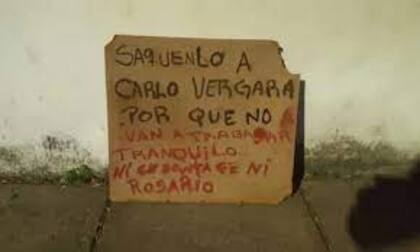 SAQUENLO A
CARLO VERGARA
POR QUE NO
VAN A TRABAJAR
TRANQUILO
NI EN SANTA FE NI
ROSARIO